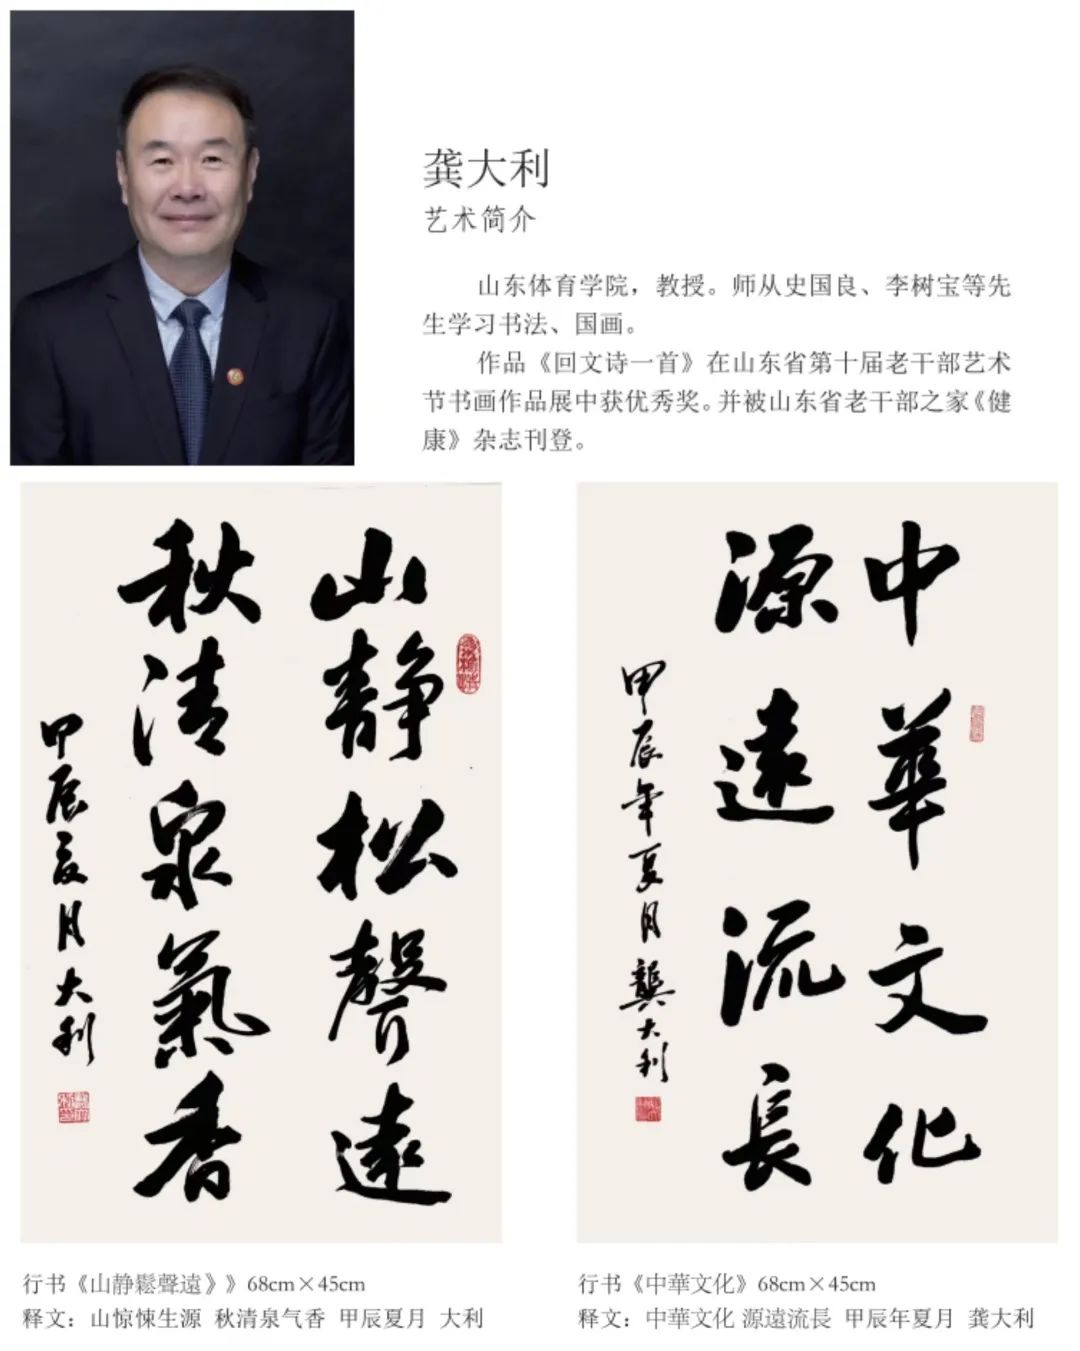 龚大利
艺术简介
山东体育学院，教授。师从史国良、李树宝等先
生学习书法、国画。
作品《回文诗一首》在山东省第十届老干部艺术
节书画作品展中获优秀奖。并被山东省老干部之家《健
康》杂志刊登。
山静松聲遠
秋清泉氣香
甲辰夏月大利
中華文化
源遠流長
甲辰年夏月龔大利
行书《山静鬆聲遠》》68cm×45cm
释文：山惊悚生源 秋清泉气香 甲辰夏月 大利
行书《中華文化》68cm×45cm
释文：中華文化 源遠流長 甲辰年夏月 龚大利